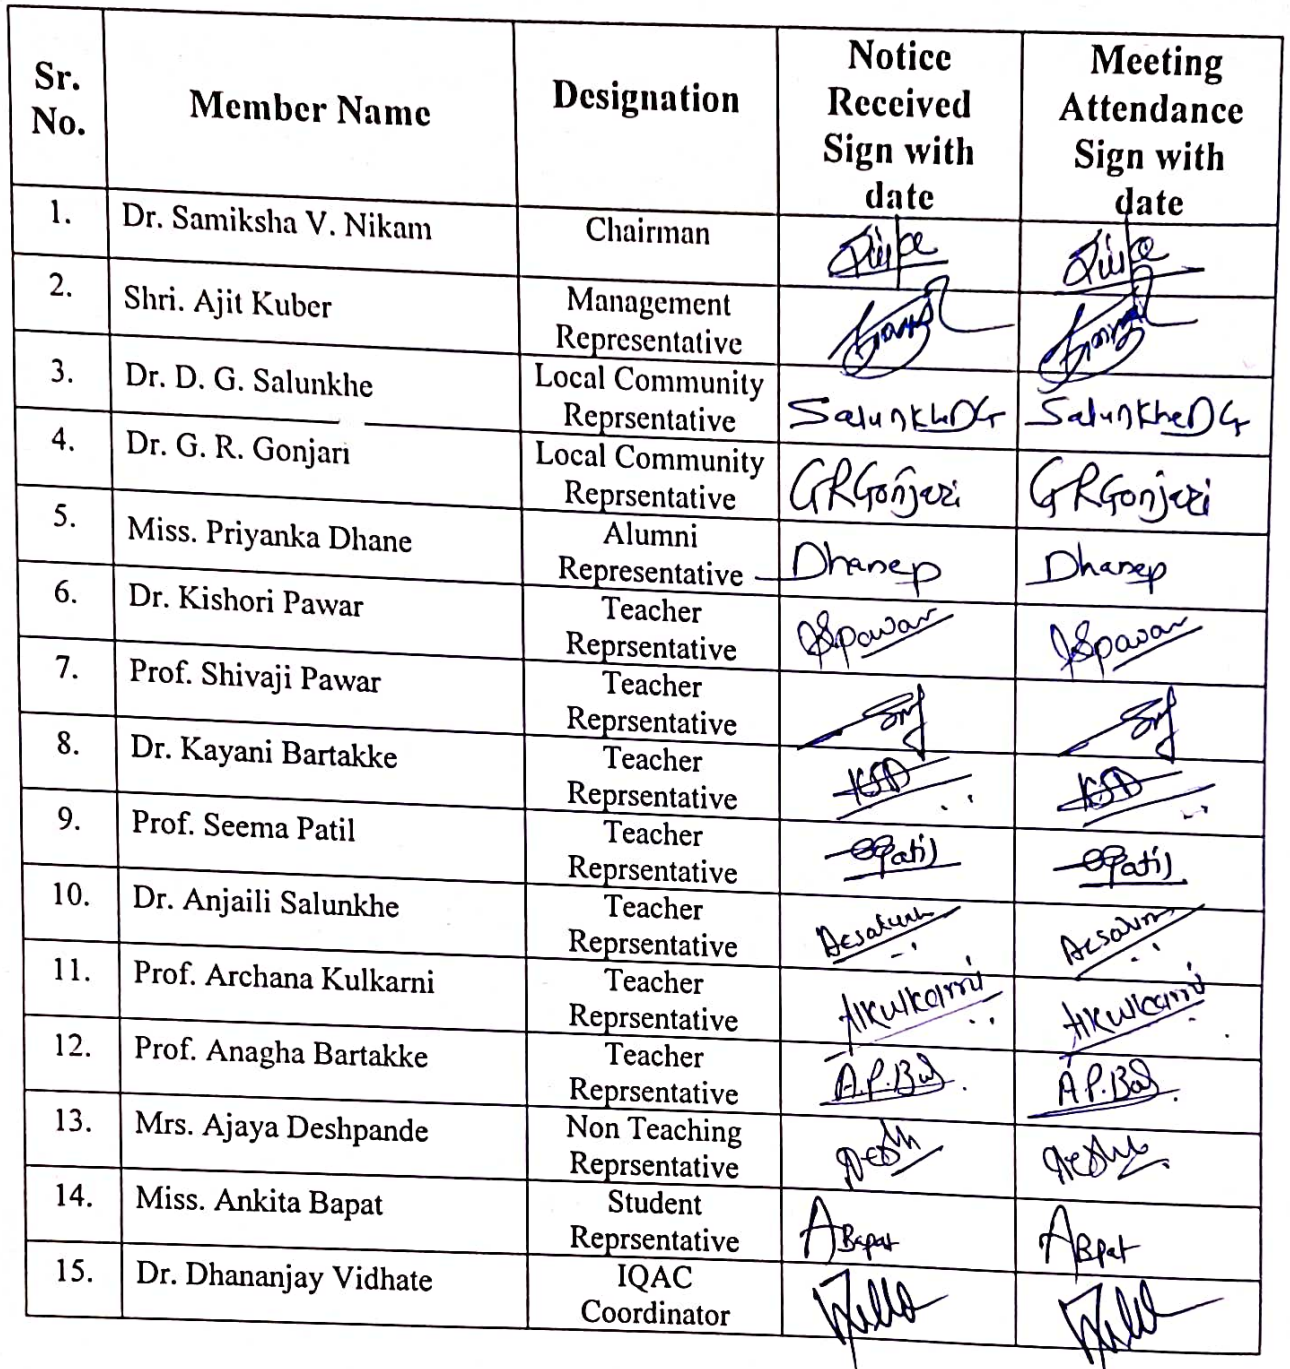 Sr. No. Member Name Designation Notice Received Sign with date Meeting Attendance Sign with date
1. Dr. Samiksha V. Nikam Chairman
2. Shri. Ajit Kuber Management Representative
3. Dr. D. G. Salunkhe Local Community Reprsentative SalunkheDG SalunkheDG
4. Dr. G. R. Gonjari Local Community Reprsentative GRGonjari GRGonjari
5. Miss. Priyanka Dhane Alumni Representative Dhanep Dhanep
6. Dr. Kishori Pawar Teacher Reprsentative
7. Prof. Shivaji Pawar Teacher Reprsentative
8. Dr. Kayani Bartakke Teacher Reprsentative
9. Prof. Seema Patil Teacher Reprsentative
10. Dr. Anjaili Salunkhe Teacher Reprsentative
11. Prof. Archana Kulkarni Teacher Reprsentative AKulkarni AKulkarni
12. Prof. Anagha Bartakke Teacher Reprsentative
13. Mrs. Ajaya Deshpande Non Teaching Reprsentative
14. Miss. Ankita Bapat Student Reprsentative ABapat ABpat
15. Dr. Dhananjay Vidhate IQAC Coordinator